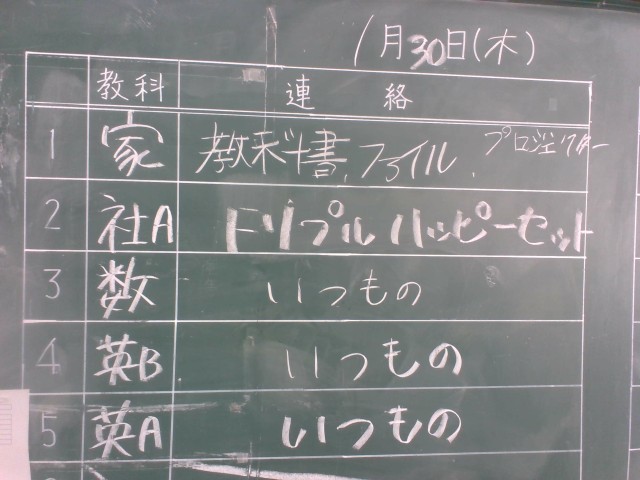 1月30日(木)
教科 連絡
1 家 教科書、ファイル、プロジェクター
2 社A トリプルハッピーセット
3 数 いつもの
4 英B いつもの
5 英A いつもの